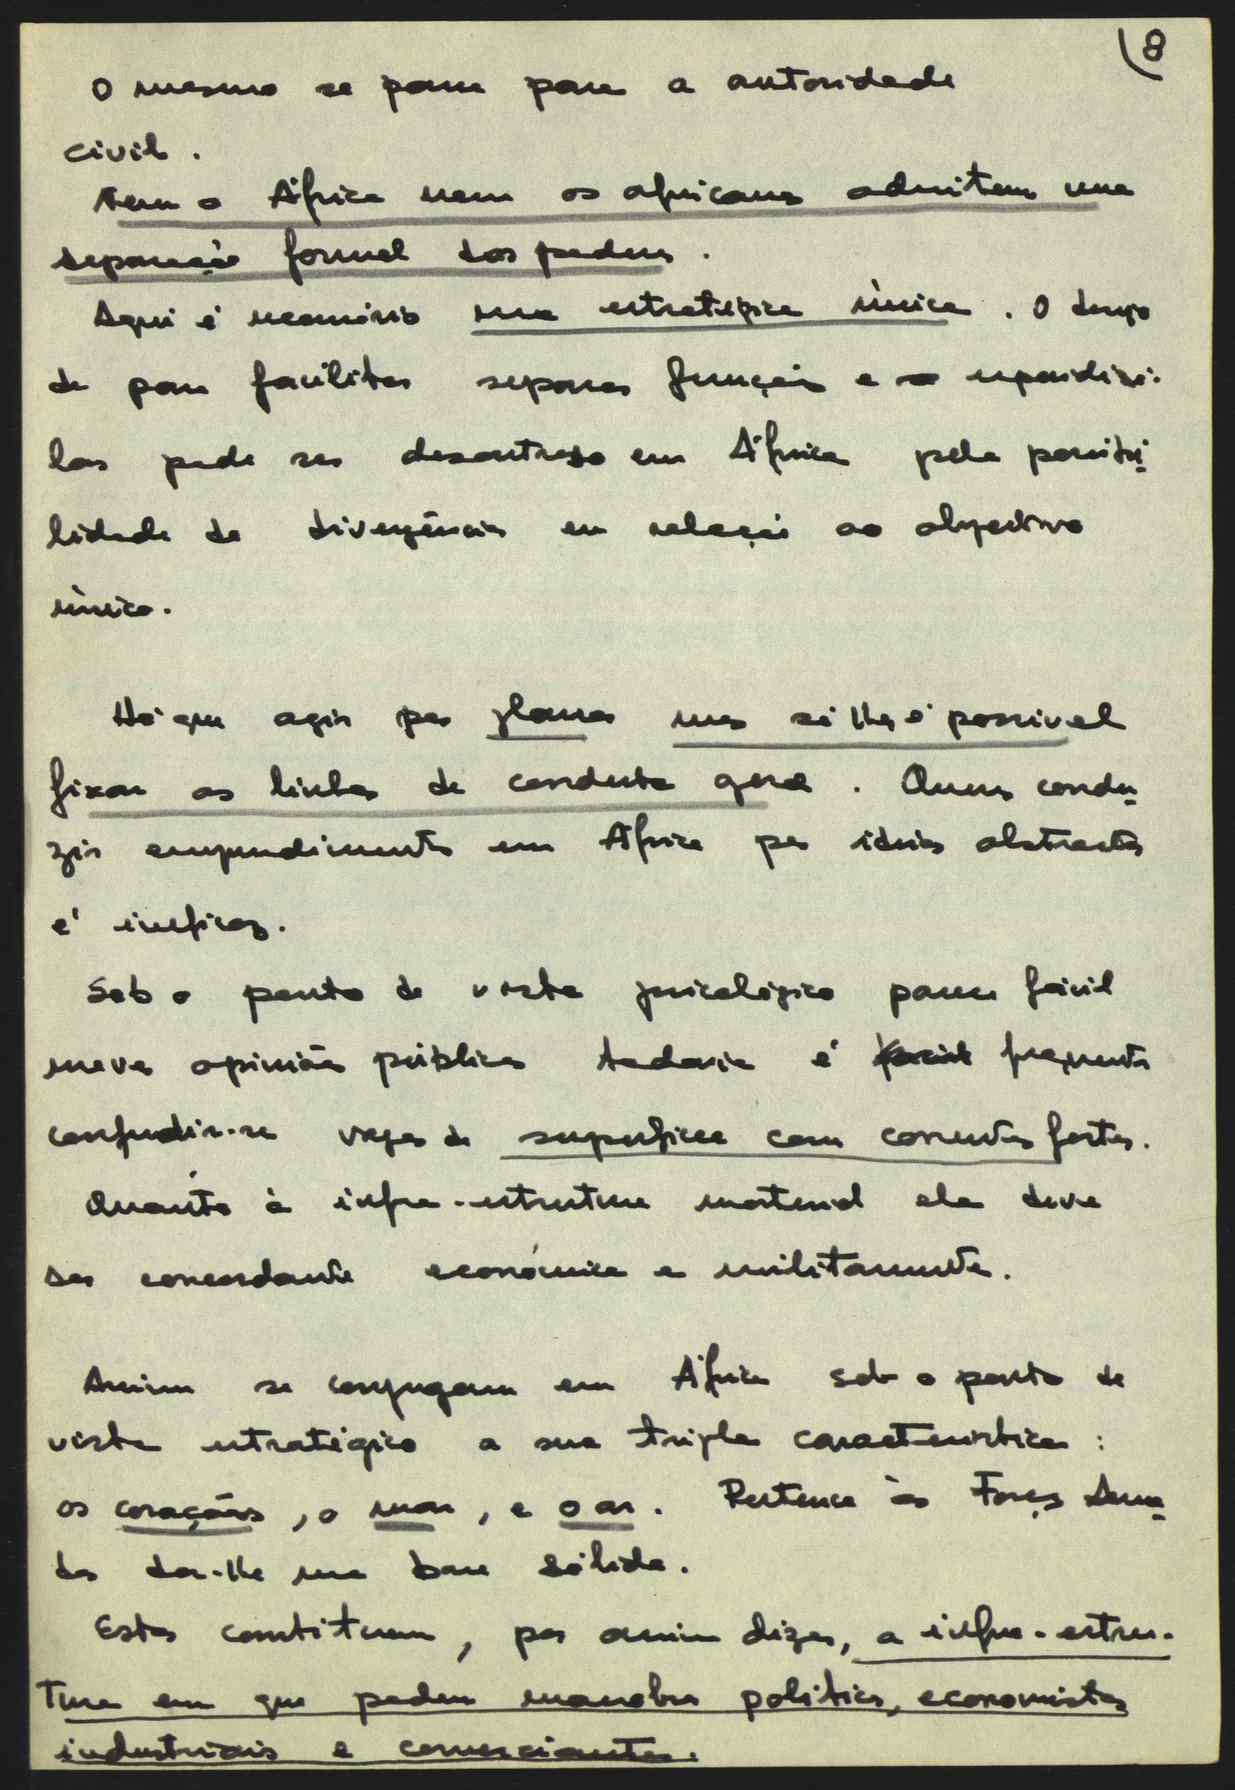 8
O mesmo se passa para a autoridade
civil.
Nem a África nem os africanos admitem uma
separação formal dos poderes.
Aqui é necessário uma estratégica única. O
de para facilitar separar funções e a
las pode ser desastroso em África pela possibi
lidade de divergências em relação ao objectivo
único.
Há que agir por planos mas só lhes é possível
fixar as linhas de conduta geral. Querer condu
zir empreendimentos em África por ideias abstractas
é ineficaz.
Sob o ponto de vista psicológico parece fácil
mover opiniões públicas todavia é fácil frequente
confundir-se vagas de superfície com correntes fortes.
Quanto à infra-estrutura material ela deve
ser concordante económica e militarmente.
Assim se conjugam em África sob o ponto de
vista estratégico a sua tripla característica:
os corações, o mar, e o ar. Pertence às Forças Arma
das dar-lhe uma base sólida.
Estas constituem, por assim dizer, a infra-estru-
tura em que podem manobrar políticos, economistas
industriais e comerciantes.